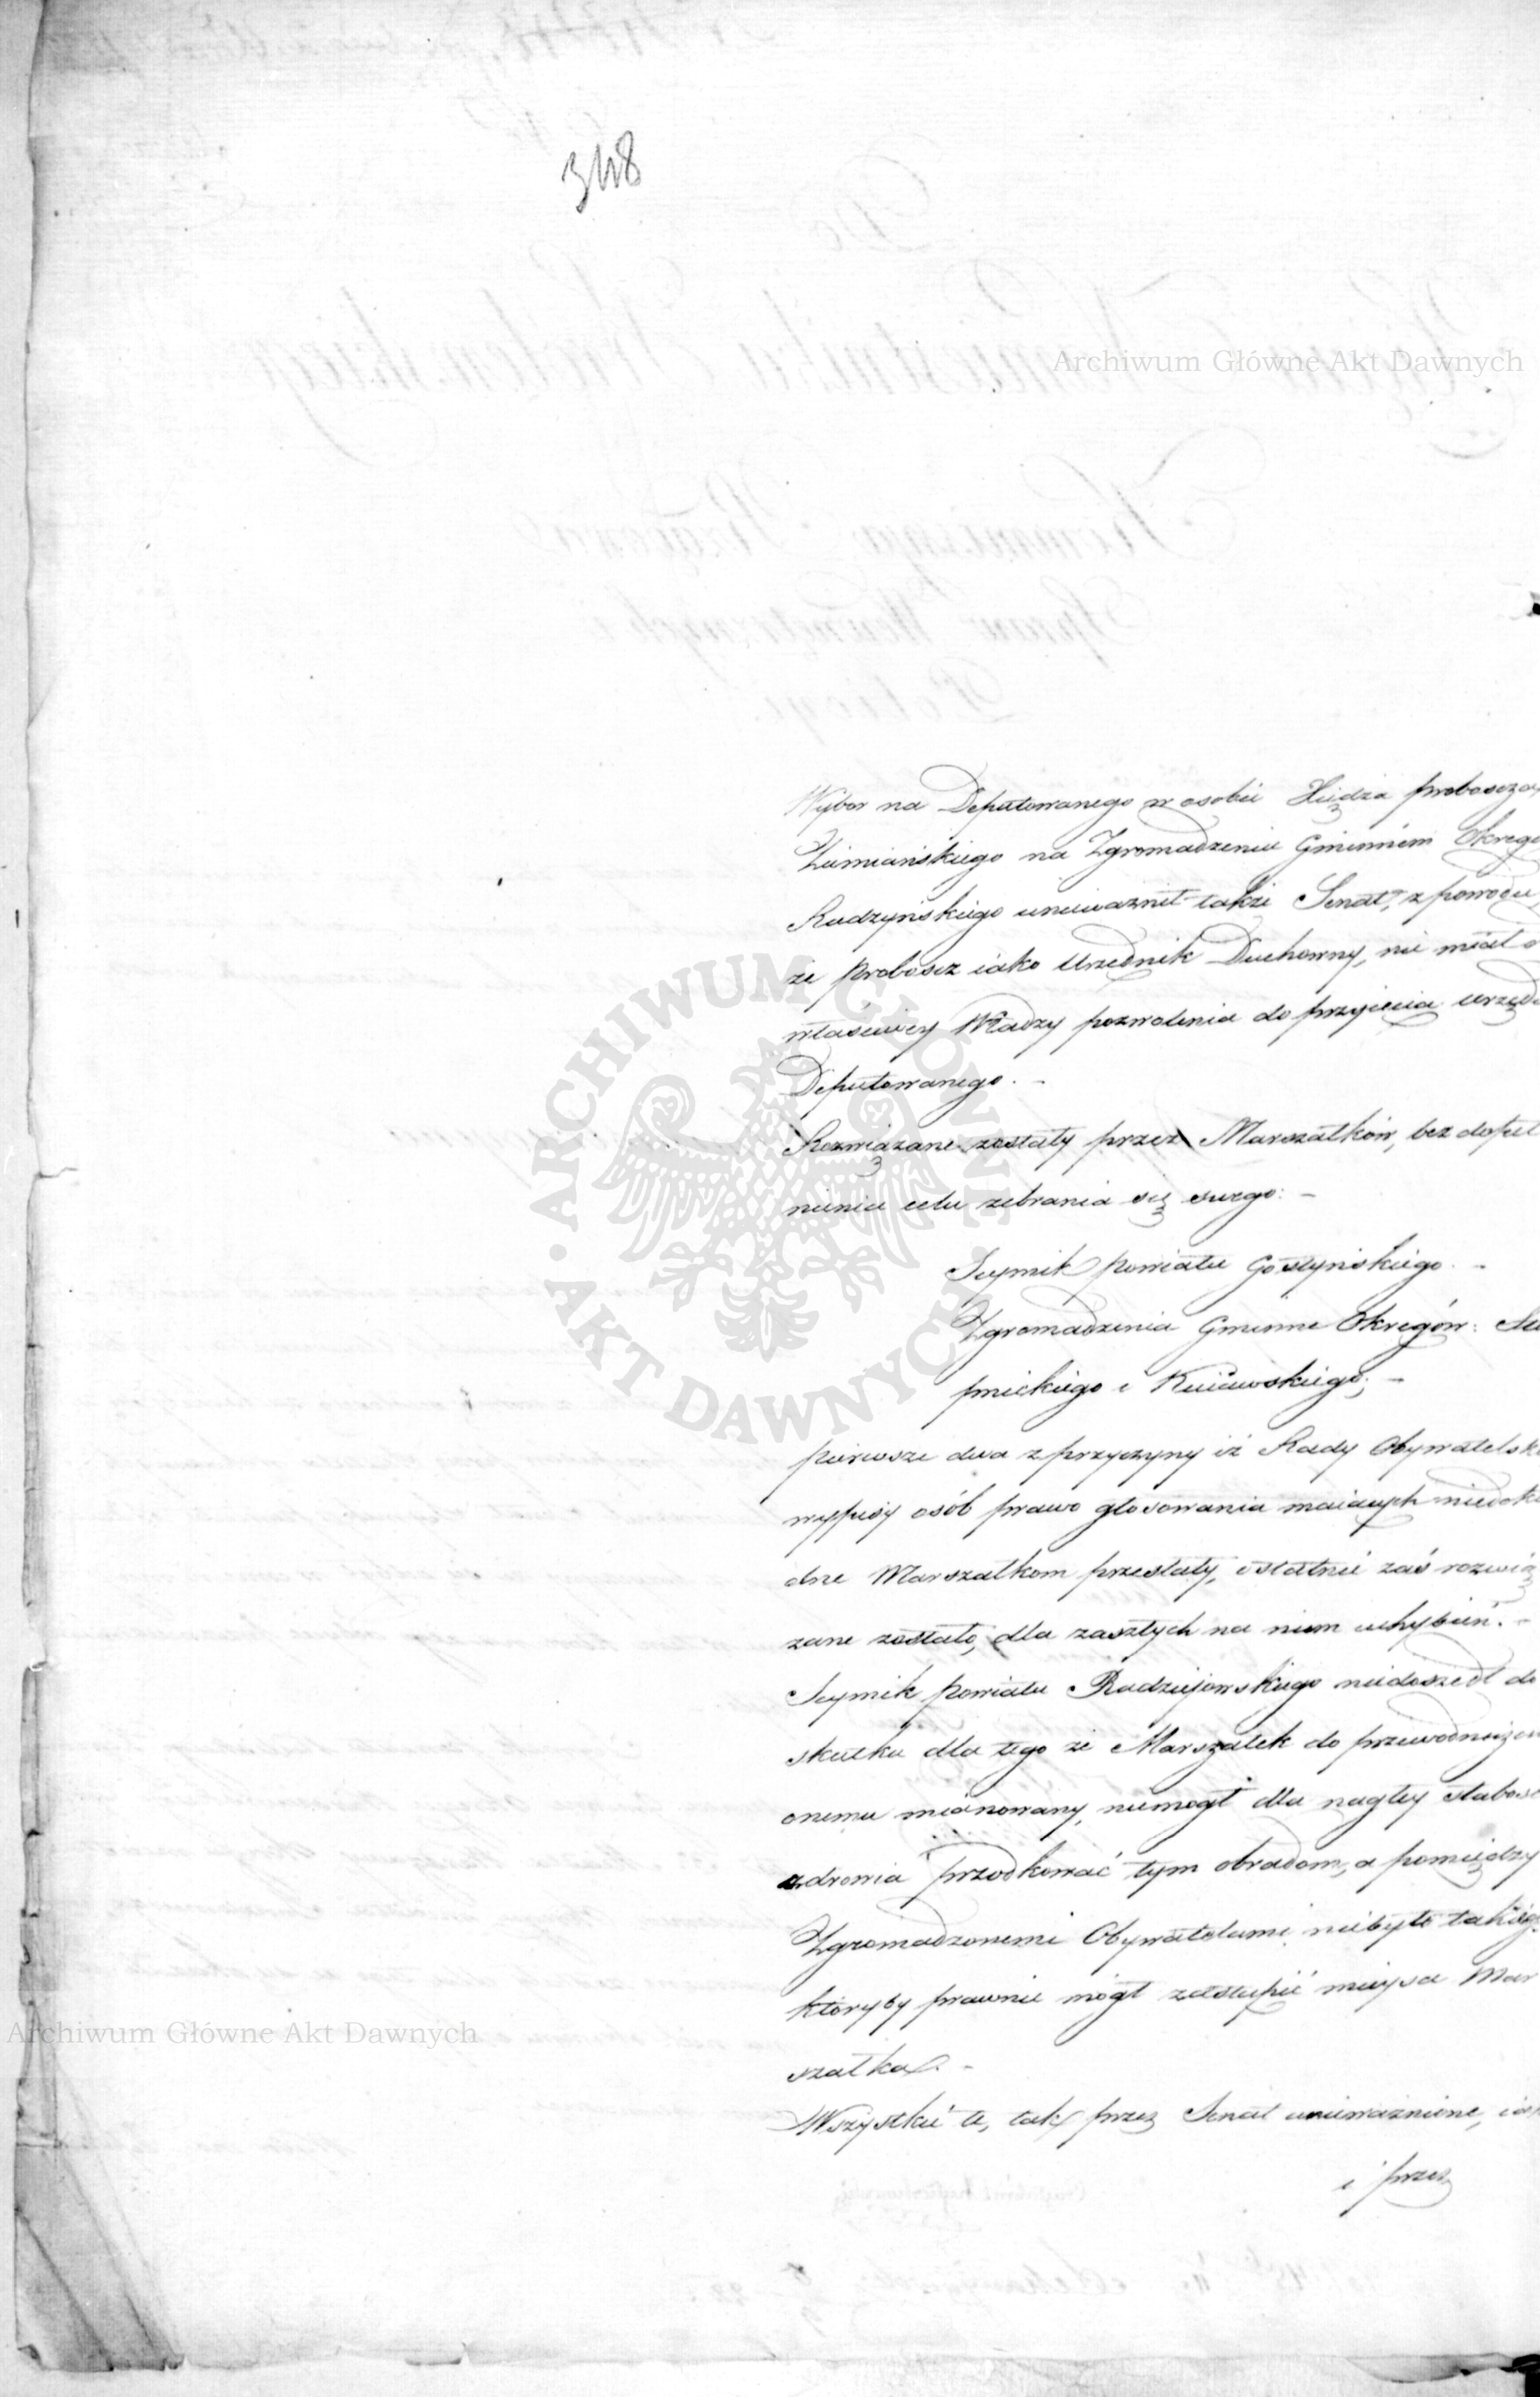 348
Archiwum Główne Akt Dawnych
Wybor na Deputowanego w osobie Xiędza proboszcza
Zumiańskiego na Zgromadzeniu Gminném Okręgo
Radzyńskiego unieważnił także Senat, z powodu
że Proboszcz iako Urzednik Duchowny, nie miał o
właściwey Władzy pozwolenia do przyięcia urzędu
Deputowanego. -
Rozwiązane zostały przez Marszałków, bez dopeł
nienia celu zebrania się swego: -
Seymik powiatu Gostyńskiego. -
Zgromadzenia Gminne Okręgów: Słu
pnickiego i Kuiawskiego; -
pierwsze dwa z przyczyny iż Rady Obywatelsk
wypisy osób prawo głosowania maiących niedokł
dne Marszałkom przesłały, ostatnie zaś rozwią
zane zostało, dla zaszłych na niem uchybień. -
Seymik powiatu Radziejowskiego niedoszedł do
skutku dla tego że Marszałek do przewodnicze
onemu mianowany, niemógł dla nagłey słabosc
zdrowia przodkować tym obradom, a pomiędzy
Zgromadzonemi Obywatelami niebyło takieg
któryby prawnie mógł zastąpić mieysce Mar
Archiwum Główne Akt Dawnych
szałka. -
Wszystkie te, tak przez Senat unieważnione, iak
i przez
ARCHIWUM GŁÓWNE · AKT DAWNYCH ·